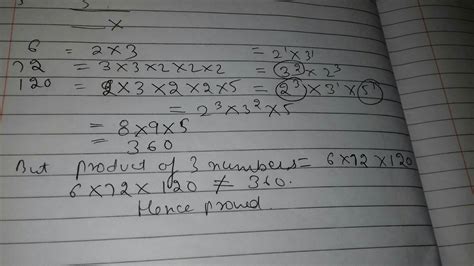 3
x
6 = 2×3 = 2¹×3¹
72 = 3×3×2×2×2 = 3²×2³
120 = 2×3×2×2×5 = 2³×3¹×5¹
= 2³×3²×5
= 8×9×5
= 360
But product of 3 numbers = 6×72×120
6×72×120 ≠ 360.
Hence proved